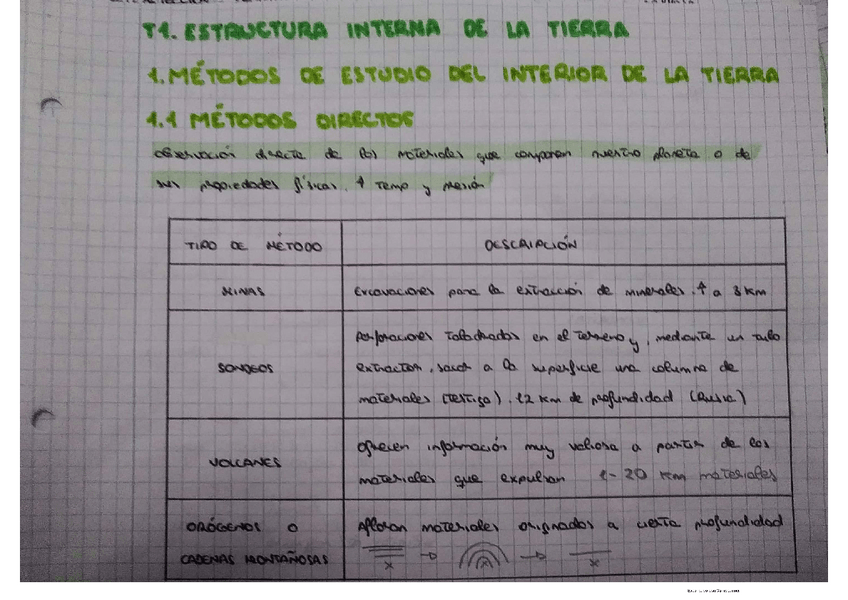 T1. ESTRUCTURA INTERNA DE LA TIERRA
1. MÉTODOS DE ESTUDIO DEL INTERIOR DE LA TIERRA
1.1 MÉTODOS DIRECTOS
Observación directa de los materiales que componen nuestro planeta o de
sus propiedades físicas. ↑ temp y presión
TIPO DE MÉTODO
DESCRIPCIÓN
MINAS
Excavaciones para la extracción de minerales. ↑ a 3 km
SONDEOS
Perforaciones taladradas en el terreno y, mediante un tubo
extractor, sacar a la superficie una columna de
materiales (testigo). 12 km de profundidad (Rusia)
VOLCANES
Ofrecen información muy valiosa a partir de los
materiales que expulsan 1-20 km materiales
ORÓGENOS O
CADENAS MONTAÑOSAS
Afloran materiales originados a cierta profundidad
x → x → x